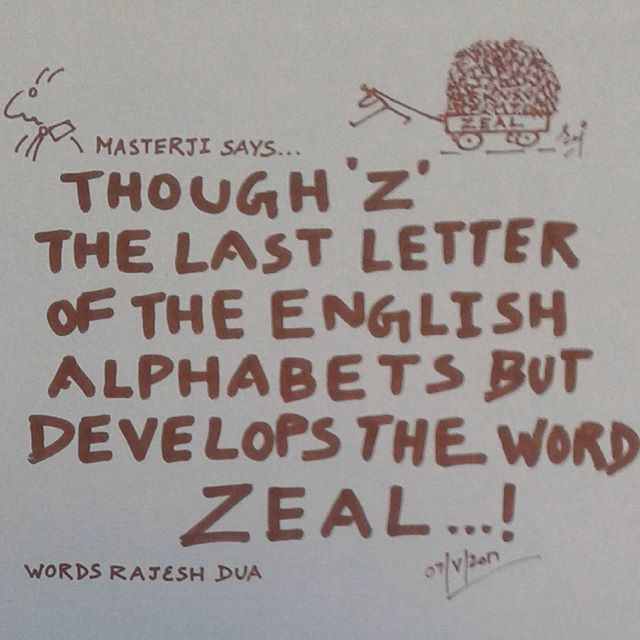 MASTERJI SAYS...
ZEAL
THOUGH 'Z'
THE LAST LETTER
OF THE ENGLISH
ALPHABETS BUT
DEVELOPS THE WORD
ZEAL...!
WORDS RAJESH DUA